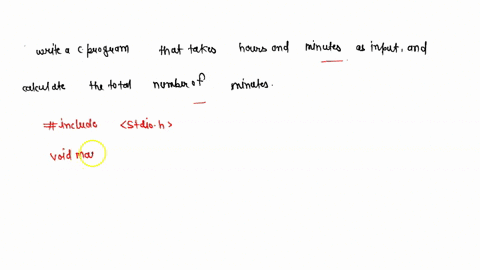 write a c program that takes hours and minutes as input, and
calculate the total number of minutes.
#include <stdio.h>
void mai